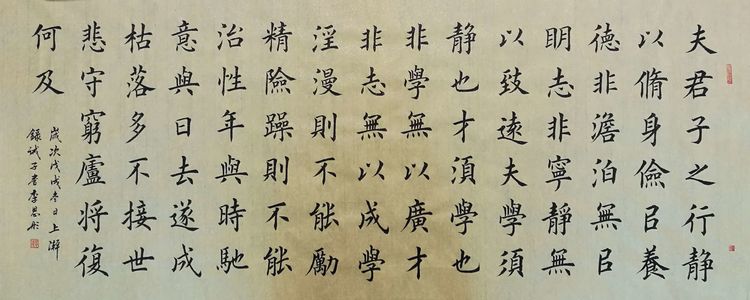 夫君子之行静
以脩身儉㠯養
德非澹泊無㠯
眀志非寧静無
以致遠夫學須
静也才須學也
非學無以廣才
非志無以成學
淫漫則不能勵
精險躁則不能
治性年與時馳
意與日去遂成
枯落多不接世
悲守窮廬将復
何及
歲次戊戌冬日上澣
錄诫子書李恩彤